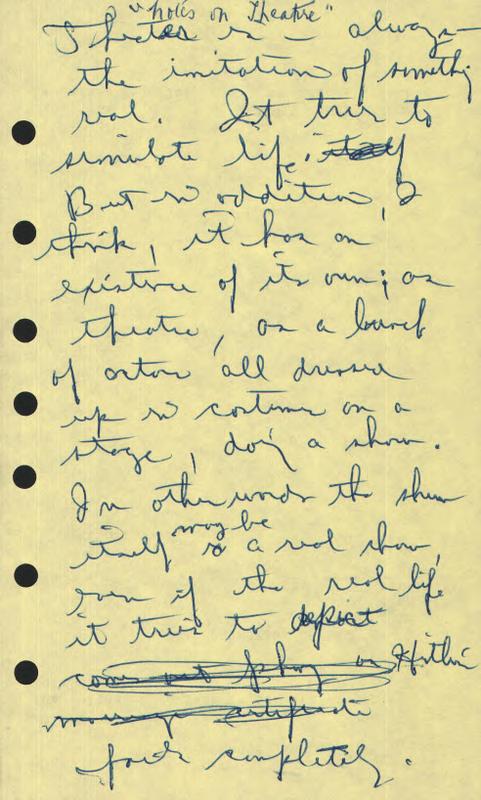 "Notes on Theatre"
Theatre is — always —
the imitation of something
real. It tries to
simulate life.
But in addition, I
think, it has an
existence of its own; as
theatre, as a bunch
of actors all dressed
up in costumes on a
stage, doing a show.
In other words the show
may be
itself is a real show,
even if the real life
it tries to depict
comes out phony as
marriage certificate
fails completely.